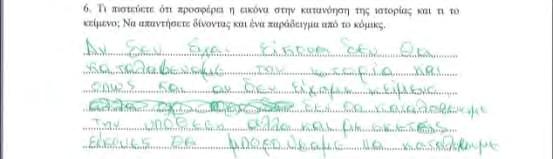 6. Τι πιστεύετε ότι προσφέρει η εικόνα στην κατανόηση της ιστορίας και τι το
κείμενο; Να απαντήσετε δίνοντας και ένα παράδειγμα από το κόμικς.
Αν δεν έχει εικονα δεν θα
καταλαβεναμε την ιστορία και
οπως και αν δεν είχαμε κείμενο
δεν θα καταλαβεναμε
την υποθεση αλλα και με σκέτες
εικονες θα μπορουσαμε να καταλαβουμε